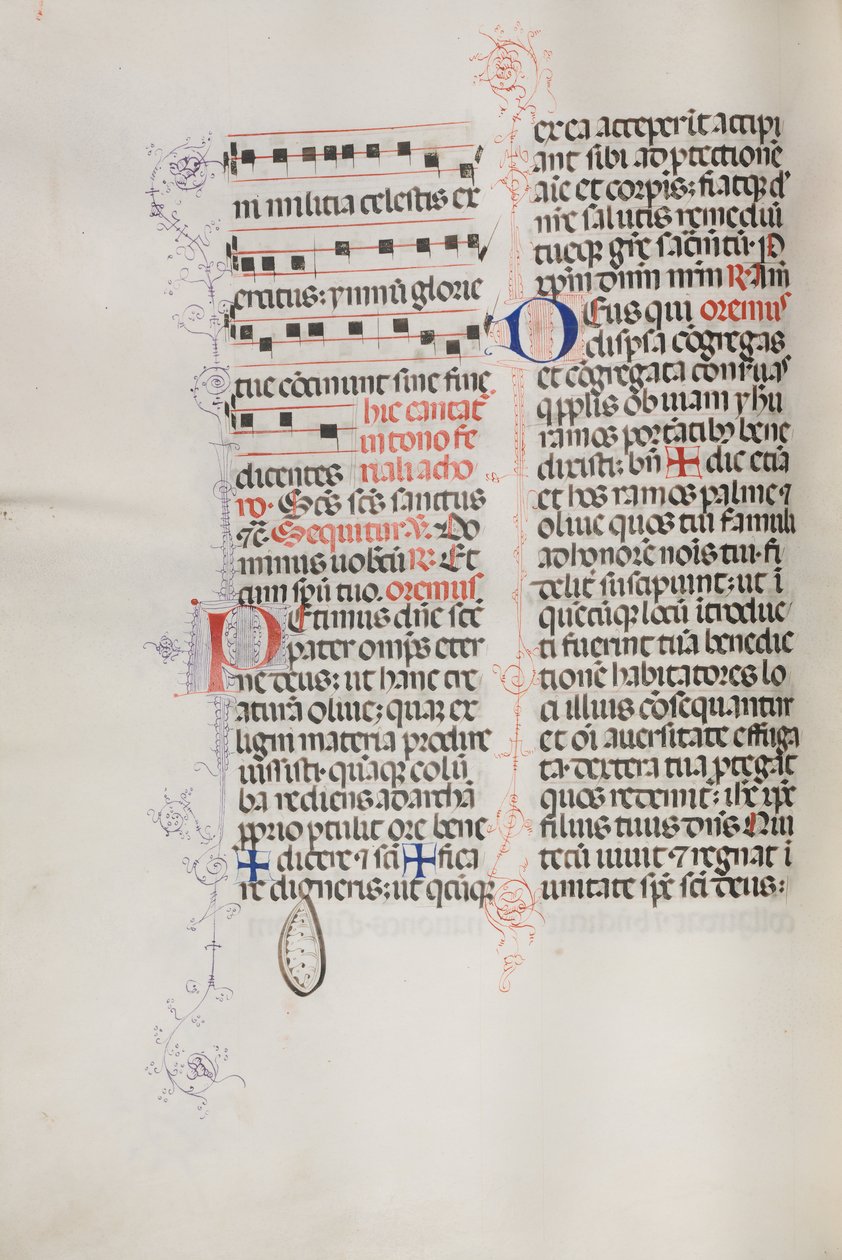 ni militia celestis ex
ercitus: ymnũ glorie
tue cõcinunt sine fine
hic cantat᷑
in tono fe
dicentes riali a cho
ro. Scs̃ scs̃ sanctus
⁊c̃. Sequitur. V̊. Do
minus uobcũ R̃. Et
cum spũ tuo. oremus
PEtimus dñe scẽ
pater omp̃s eter
ne deus: ut hanc cre
aturã oliue; quaʒ ex
ligni materia prodire
iussisti. quãqʒ colũ
ba rediens ad archã
ꝓprio ꝑtulit ore bene
✠ dicere ⁊ sci ✠ fica
re digneris: ut q̃cũqʒ
ex ea acceperĩt accipi
ant sibi ad ꝓtectionẽ
aĩe et corp̃is; fiatqʒ dñe
nr̃e salutis remediũ
tueqʒ gr̃e sac̃m̃tũ. P
xp̃m dñm nr̃m R̃. Am̃
DEus qui oremus
disp̃sa cõgregas
et cõgregata conẽruas
q̃ pp̃lis obuiam yhũ
ramos portãtibʒ bene
dixisti: bñ ✠ dic etiã
et hos ramos palme ⁊
oliue quos tui famuli
ad honorẽ nõis tui. fi
delit᷑ suscipiunt; ut ĩ
quecũqʒ locũ ĩtroduc
ti fuerint tuã benedic
tionẽ habitatores lo
ci illius cõsequantur
et oĩ auersitate effuga
ta. dextera tua ꝓtegat
quos redemit: ih̃c xp̃c
filius tuus dñs. Qui
tecũ uiuit ⁊ regnat ĩ
unitate sp̃c sc̃i deus: